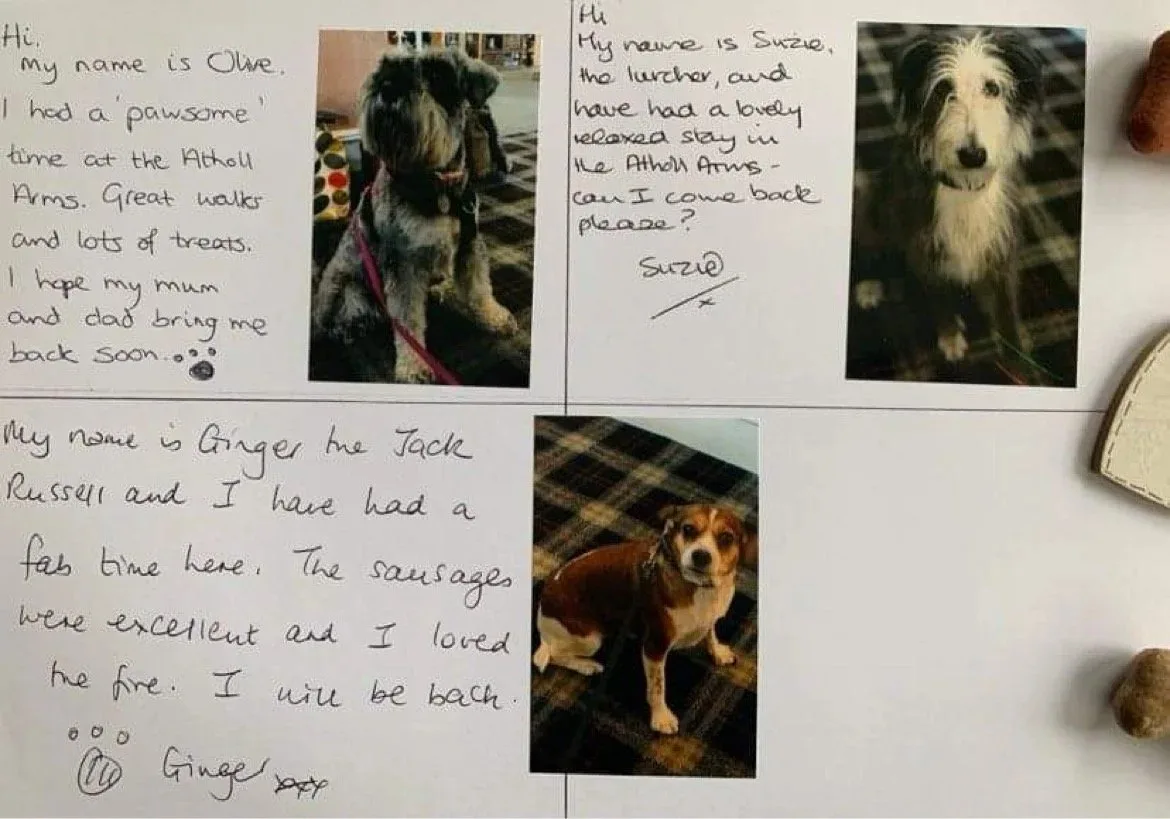 Hi.
My name is Olive.
I had a 'pawsome'
time at the Atholl
Arms. Great walks
and lots of treats.
I hope my mum
and dad bring me
back soon.
Hi
My name is Suzie,
the lurcher, and
have had a lovely
relaxed stay in
the Atholl Arms -
can I come back
please?
Suzie
x
My name is Ginger the Jack
Russell and I have had a
fab time here. The sausages
were excellent and I loved
the fire. I will be back.
Ginger xxx